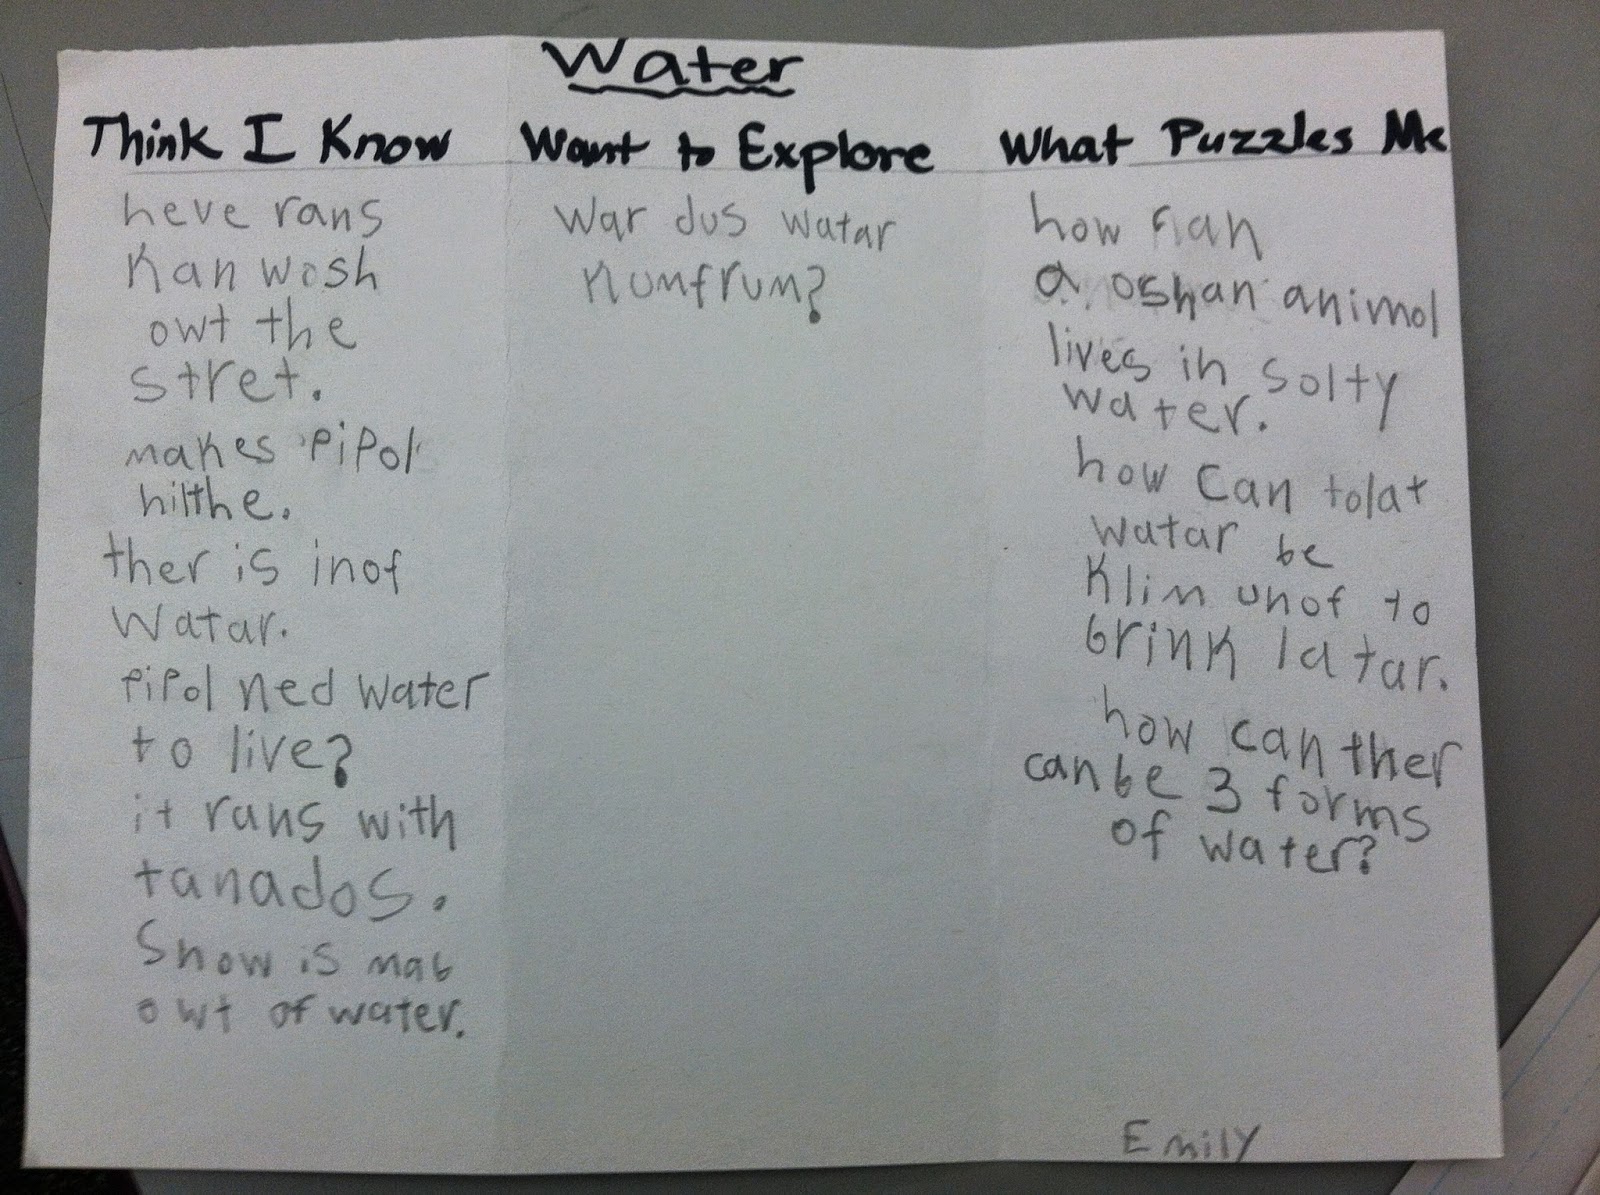 Water
Think I Know
heve rans
Kan wosh
owt the
stret.
makes pipol
hilthe.
ther is inof
watar.
pipol ned water
to live?
it rans with
tanados.
Snow is mab
owt of water.
Want to Explore
War dus watar
kumfrum?
What Puzzles Me
how
a oshan animol
lives in solty
water.
how can tolat
watar be
klin unof to
brink latar.
how can ther
can be 3 forms
of water?
Emily